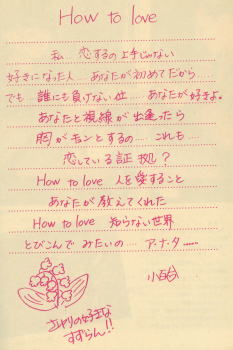 How to love
私 恋するの上手じゃない
好きになった人 あなたが初めてだから……
でも…誰にも負けない位……あなたが好きよ。
あなたと視線が出逢ったら
胸がキュンとするの……これも……
恋している証拠?
How to love 人を愛すること
あなたが教えてくれた
How to love 知らない世界
とびこんでみたいの……ア・ナ・タ……
の好きな
すずらん!!